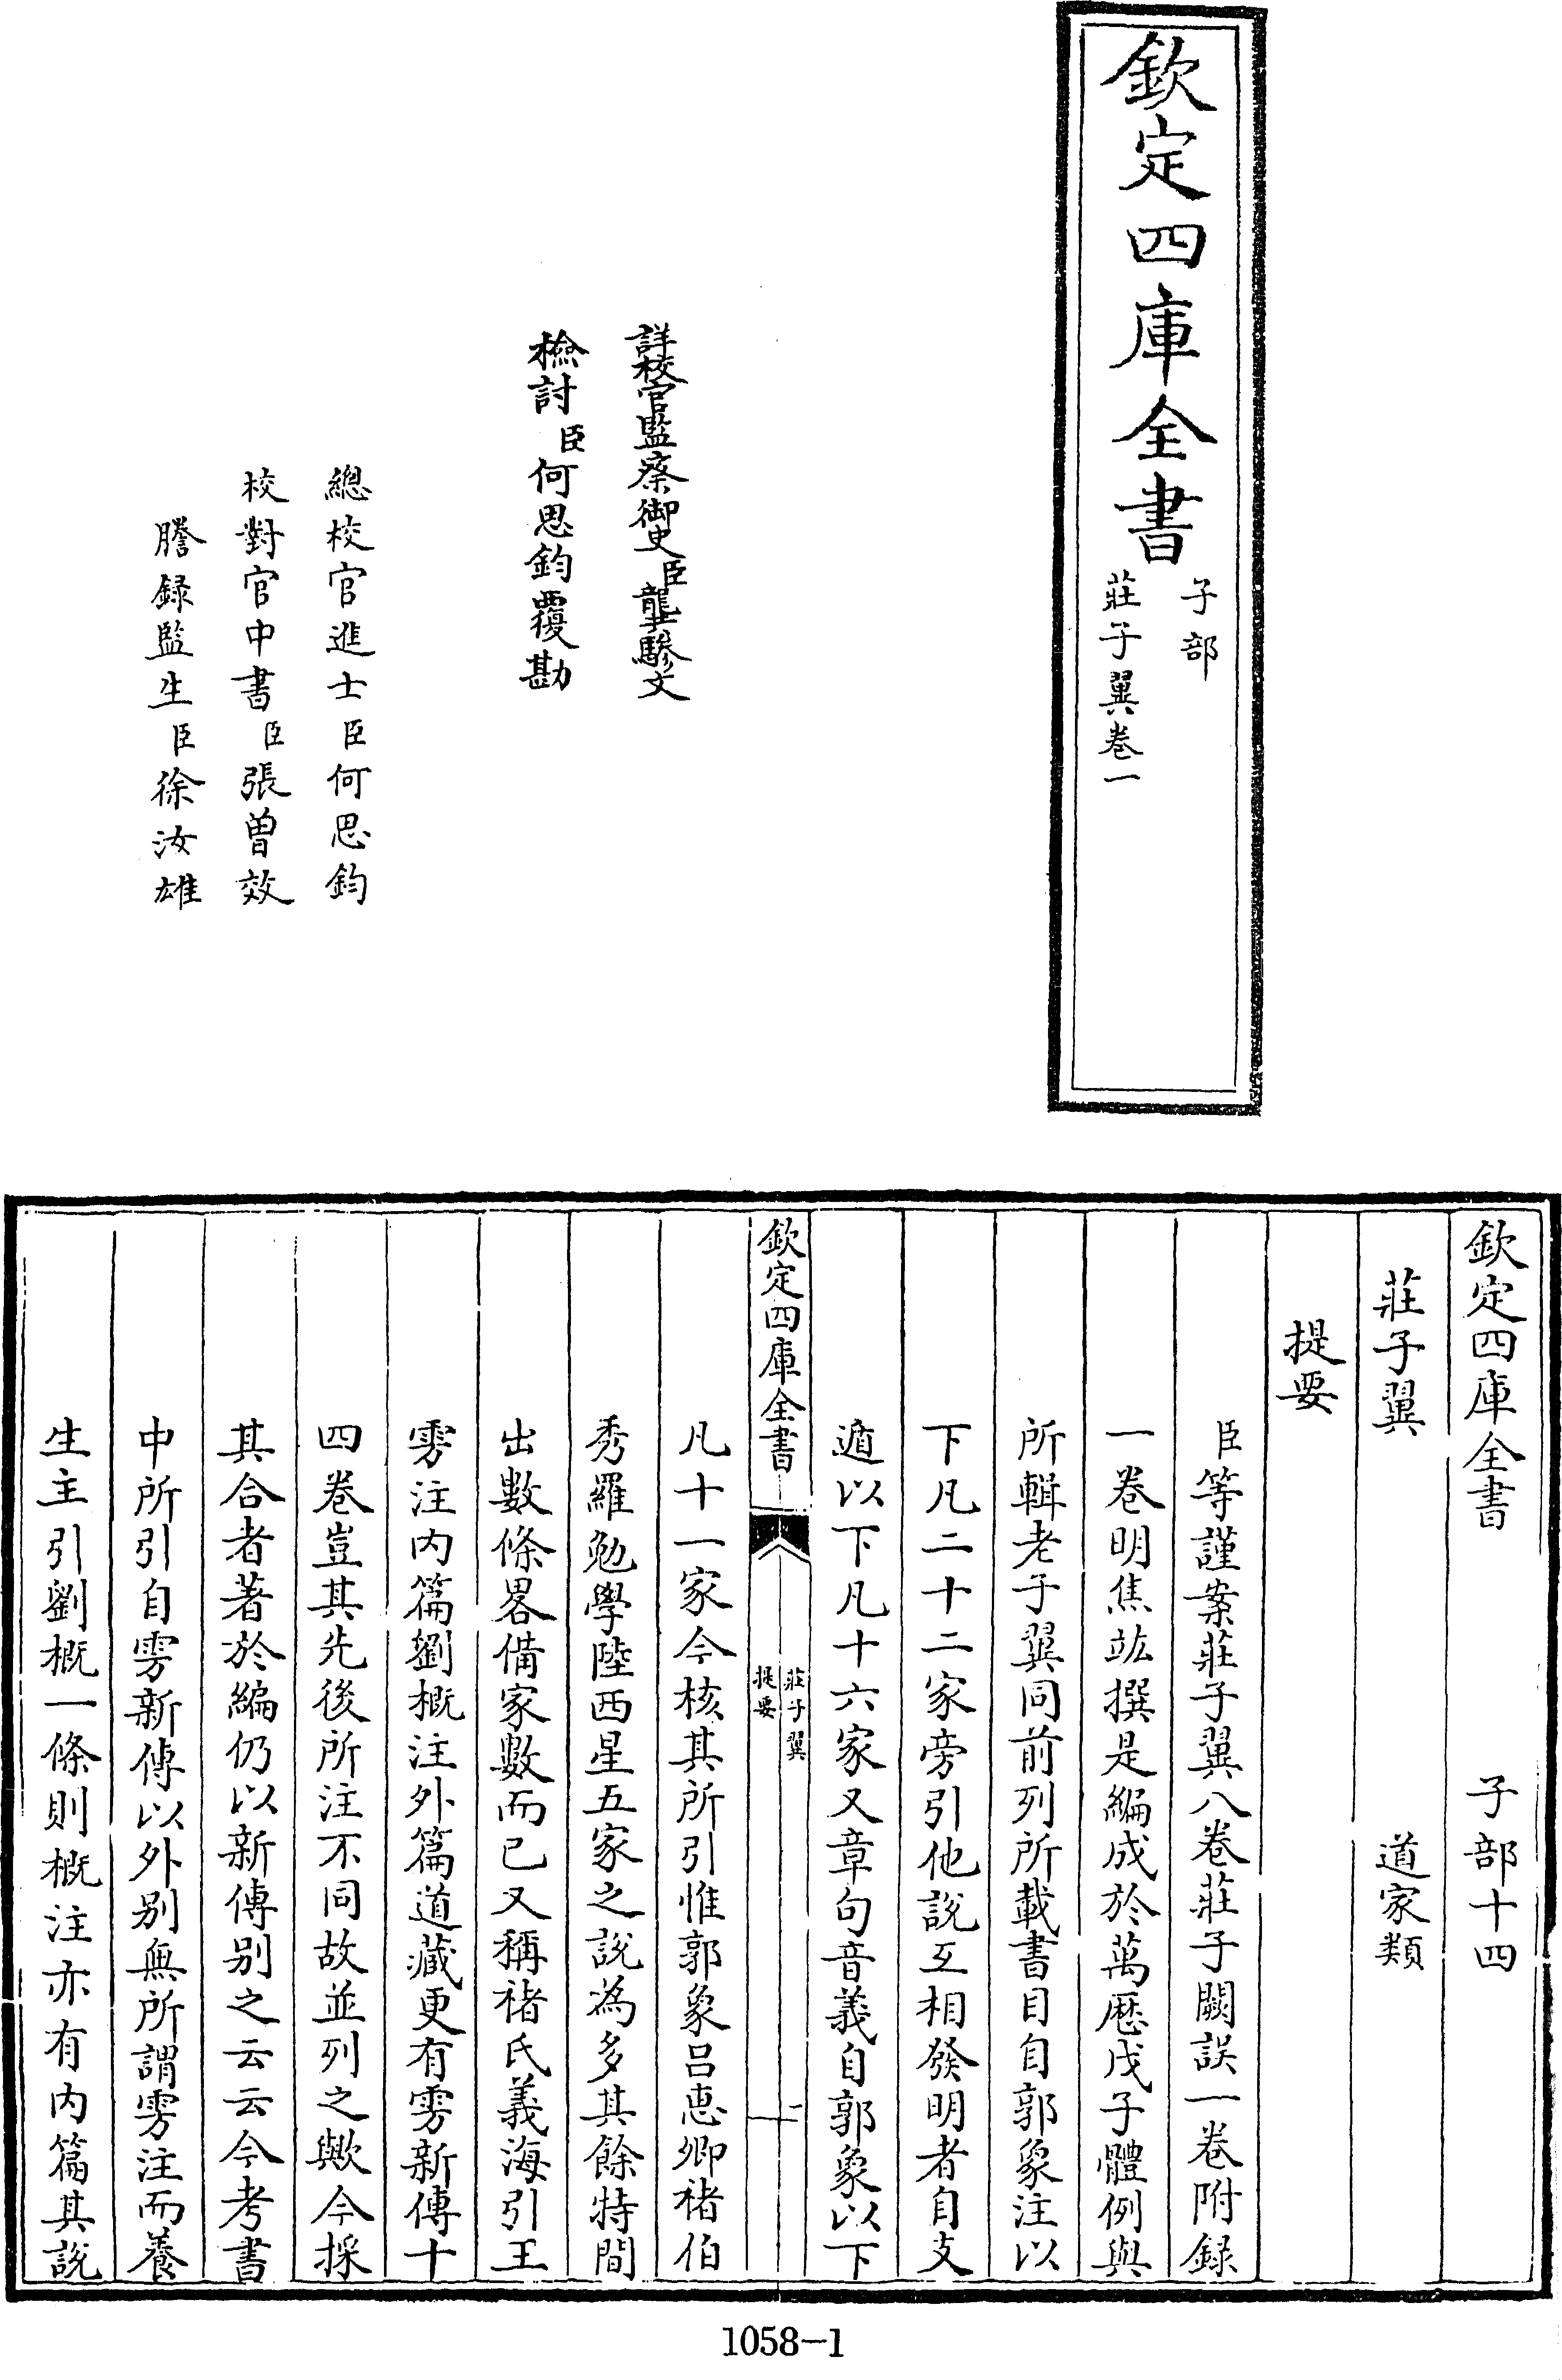 欽定四庫全書
子部
莊子翼卷一
詳校官監察御史臣龔驂文
檢討臣何思鈞覆勘
總校官進士臣何思鈞
校對官中書臣張曾效
謄録監生臣徐汝雄
欽定四庫全書　子部十四
莊子翼　道家類
提要
臣等謹案莊子翼八卷莊子闕誤一卷附録
一卷明焦竑撰是編成於萬厯戊子體例與
所輯老子翼同前列所載書目自郭象注以
下凡二十二家旁引他說互相發明者自支
遁以下凡十六家又章句音義自郭象以下
欽定四庫全書
莊子翼
提要
二
凡十一家今核其所引惟郭象吕惠卿褚伯
秀羅勉學陸西星五家之說為多其餘特間
出數條畧備家數而已又稱褚氏義海引王
雱注内篇劉概注外篇道藏更有雱新傳十
四卷豈其先後所注不同故並列之歟今採
其合者著於編仍以新傳别之云云今考書
中所引自雱新傳以外别無所謂雱注而養
生主引劉概一條則概注亦有内篇其說
1058-1